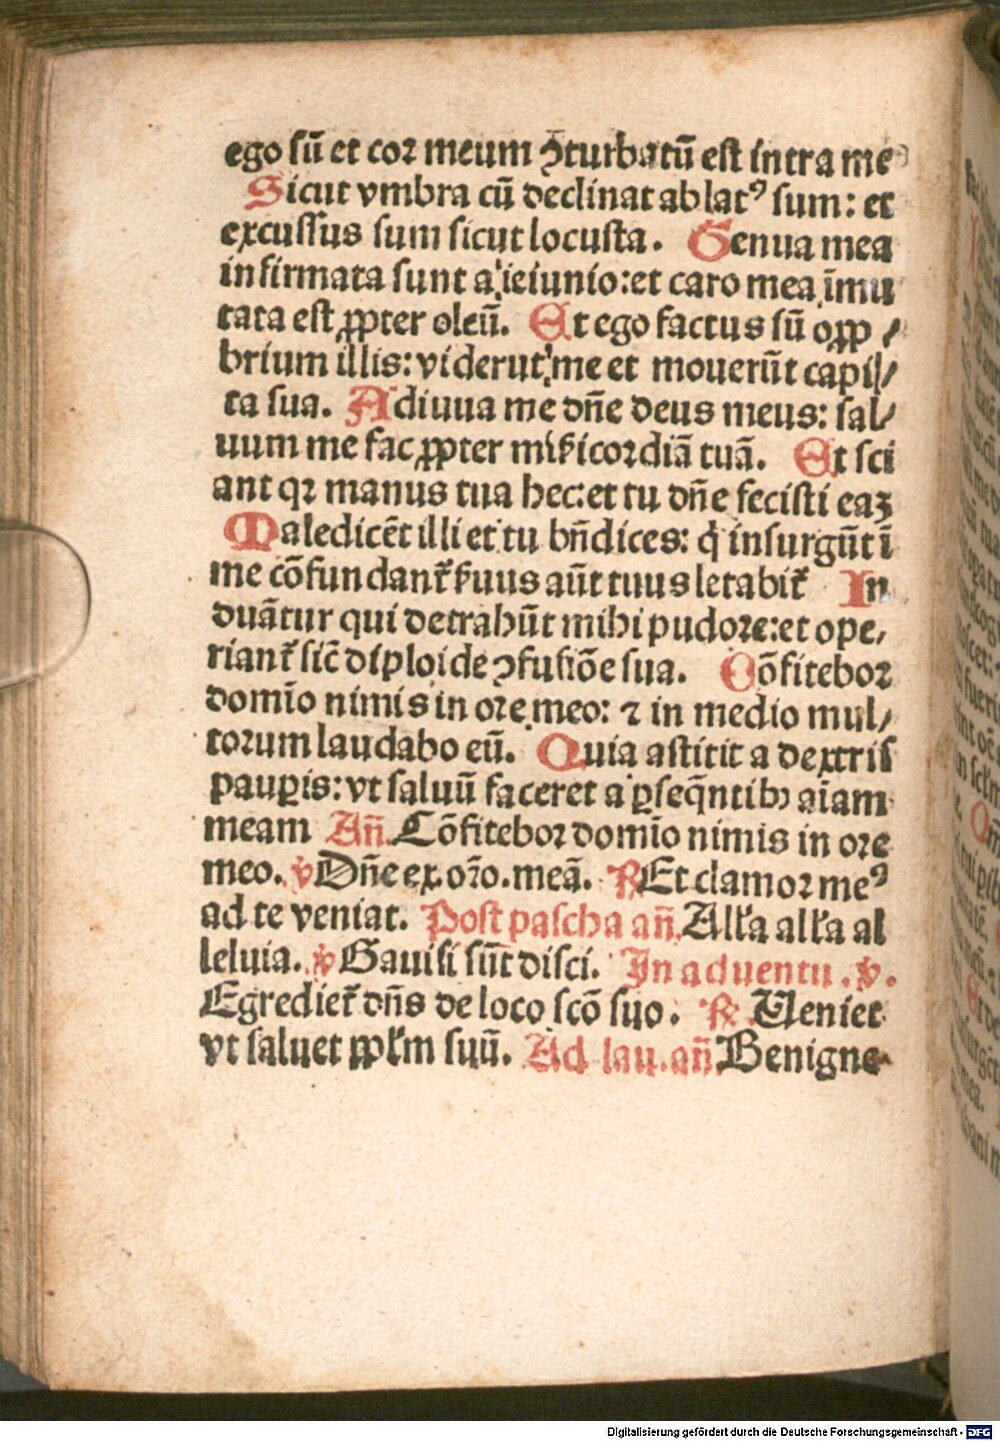 ego ſū et coꝛ meum ↄturbatū eſt intra me
Sicut vmbra cū declinat ablatꝰ sum: et
excuſſus ſum ſicut locuſta. Genua mea
infirmata ſunt a ieiunio: et caro mea īmu
tata eſt ꝓpter oleū. Et ego factus ſū oꝓp⸗
brium illis: viderūt me et mouerūt capi⸗
ta ſua. Adiuua me dn̄e deus meus: ſal⸗
uum me fac ꝓpter mīẜicoꝛdiā tuā. Et ſci
ant qꝛ manus tua hec: et tu dn̄e feciſti eaꝫ
Maledicēt illi et tu bn̄dices: q̇ inſurgūt ī
me cōfundant᷑ ẜuus aūt tuus letabit᷑ In
duātur qui detrahūt mihi pudoꝛe: et ope⸗
riant᷑ ſic̄ diploide ↄfuſiōe ſua. Cōfitebor
domīo nimis in oꝛe meo: ⁊ in medio mul⸗
toꝛum laudabo eū. Quia aſtitit a dextriſ
pauꝑis: vt ſaluū faceret a ꝑſeq̄ntibꝫ aīam
meam An̄. Cōfiteboꝛ domīo nimis in oꝛe
meo. ℣ Dn̄e ex. oꝛ̄o. meā. ℟ Et clamoꝛ meꝰ
ad te veniat. Poſt paſcha an̄. Alľa alľa al
leluia. ℣ Gauiſi ſūt diſci. In aduentu. ℣.
Egrediet᷑ dn̄s de loco ſcō ſuo. ℟. Ueniet
vt ſaluet ppľm ſuū. Ad lau. an̄. Benigne
Digitalisierung gefördert durch die Deutsche Forschungsgemeinschaft - DFG